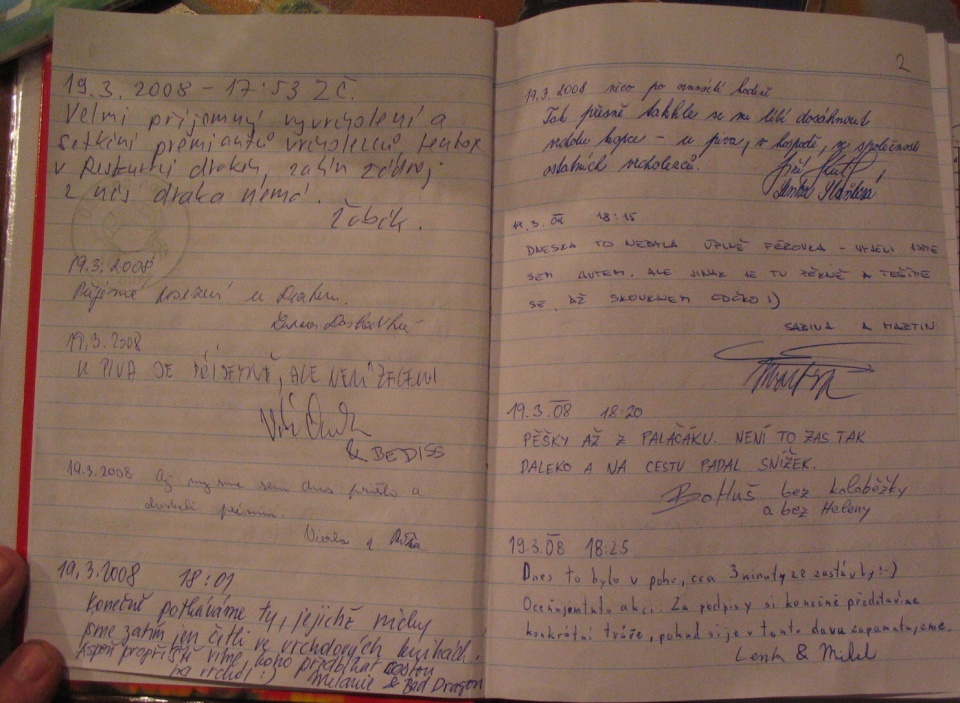 19.3.2008 - 17:53 ZČ.
Velmi příjemný vyvrcholení a
setkání premiantů vrcholecců
v Restauraci drakem, zatím zdroj
z nás draka nemá.
Žabák.
19.3.2008
Příjemné posezení u Draka.
19.3.2008
U PIVA JE PŘÍJEMNĚ, ALE NENÍ ZELENÝ
& BEDISS
19.3.2008 Až my sme sem dnes přišli a
19.3.2008 18:01
Konečně potkáváme ty, jejichž nicky
jsme zatím jen četli ve vrcholových knihách.
Aspoň příště víme, koho předbíhat cestou
na vrchol :) Melanie & Bad Dragon
2
19.3.2008 něco po osmnácté hodině
Tak přesně takhle se mi líbí dosáhnout
vrcholu kopce - u piva, v hospodě, ve společnosti
ostatních vrcholecců.
19.3.08 18:15
DNESKA TO NEBYLA ÚPLNĚ FÉROVKA - VYJELI JSME
SEM AUTEM. ALE JINAK JE TU PĚKNĚ A TEŠÍME
SE, AŽ SKOUKNEM :)
SABINA A MARTIN
19.3.08 18:20
PĚŠKY AŽ Z PALÁČÁKU. NENÍ TO ZAS TAK
DALEKO A NA CESTU PADAL SNÍŽEK.
BOHUŠ bez koloběžky
a bez Heleny
19.3.08 18:25
Dnes to bylo v poho, cca 3 minuty ze zastávky :-)
Oceňujem tuto akci. Za podpisy si konečně představíme
konkrétní tváře, pokud si je v tomto davu zapamatujeme.
Lenka & Michal